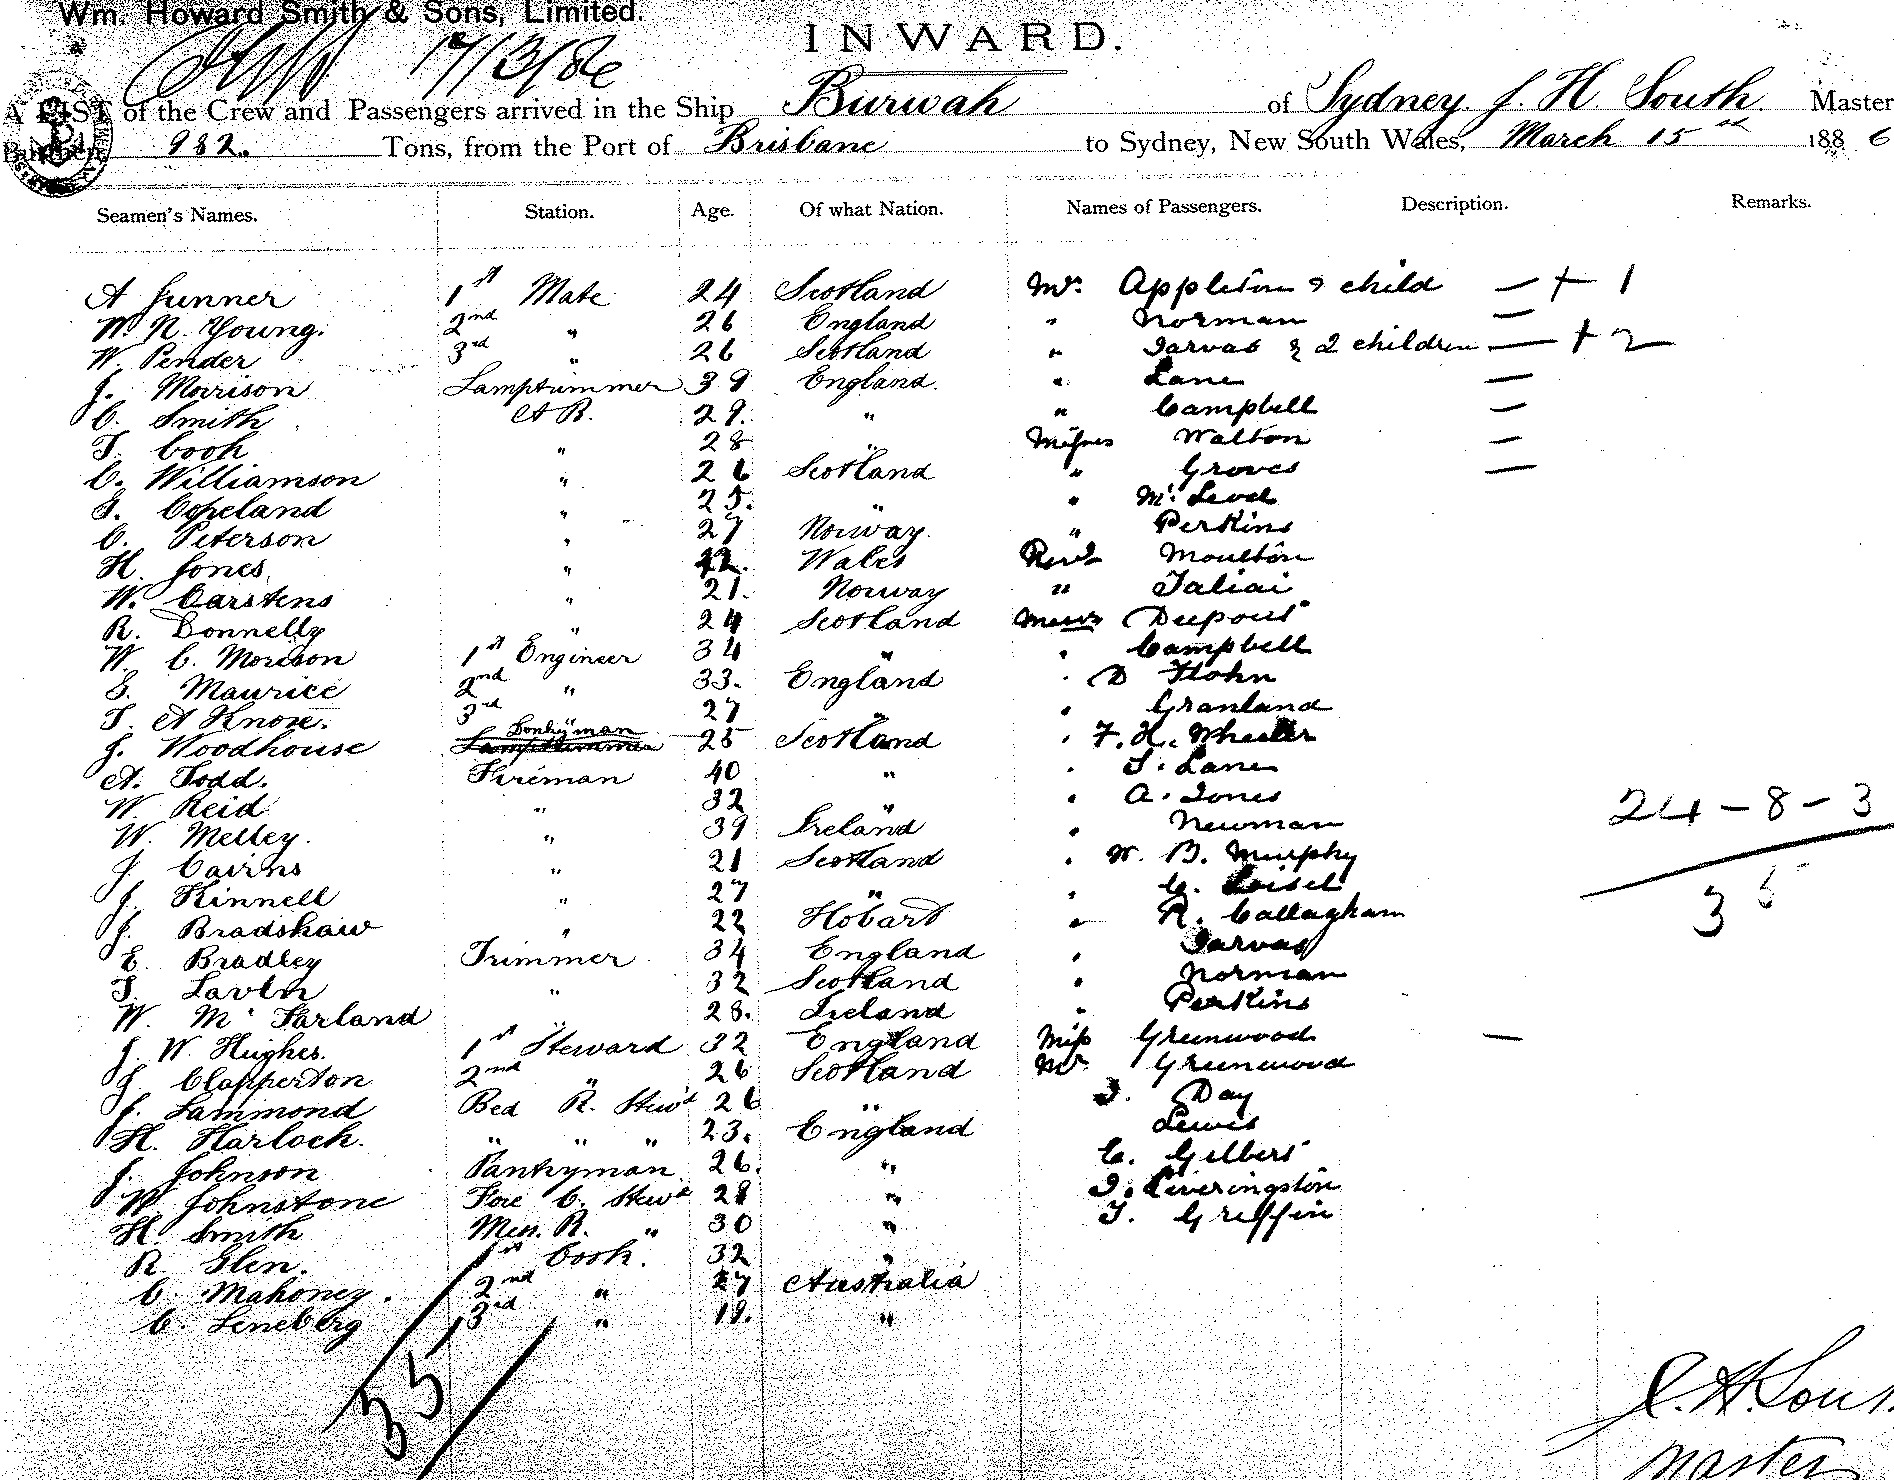 Wm. Howard Smith & Sons, Limited.
17/3/86
INWARD.
A LIST of the Crew and Passengers arrived in the Ship Burwah of Sydney J. H. South Master
Burthen 982. Tons, from the Port of Brisbane to Sydney, New South Wales, March 15 1886
Seamen's Names. Station. Age. Of what Nation. Names of Passengers. Description. Remarks.
A Junner 1st Mate 24 Scotland Mrs. Appleton & child — + 1
W. N. Young. 2nd " 26 England " Norman —
W. Pender 3rd " 26 Scotland " Jarvas & 2 children — + 2
J. Morrison Lamptrimmer 39 England. " Lane —
C. Smith A B. 29. " " Campbell —
T. Cook " 28 " Misses Walton —
C. Williamson " 26 Scotland " Groves —
J. Copeland " 25. " " McLeod
C. Peterson " 27 Norway. " Perkins
H. Jones " Wales Revd Moulton
W. Carstens " 21. Norway " Taliai
R. Donnelly " 24 Scotland Messrs Dupont
W. C. Morison 1st Engineer 34 " " Campbell
S. Maurice 2nd " 33. England " D Hohn
T. A Knox. 3rd " 27 " " Granland
J. Woodhouse Donkeyman 25 Scotland " F. H. Wheeler
A. Todd. Fireman 40 " " T. Lane
W. Reid " 32 " " A. Jones
W. Melley. " 39 Ireland " Newman
J. Cairns " 21 Scotland " W. B. Murphy
J. Kinnell " 27 " " C. Loisel
J. Bradshaw " 22 Hobart " R. Callagham
E. Bradley Trimmer 34 England " Jarvas
T. " 32 Scotland " Norman
W. McFarland " 28. Ireland " Perkins
J. W. Hughes. 1st Steward 32 England Miss Greenwood —
J. Clapperton 2nd " 26 Scotland Mr. Greenwood
J. Lammond Bed R. Stewd 26 " J. Day
H. Harloch. " " " 23. England Lewis
J. Johnson Pantryman 26. " C. Gilbert
W. Johnstone Fore C. Stewd 28 " J. Liveringston
H. Smith Mess. R. " 30 " T. Griffin
R Glen. 1st Cook. 32 "
C. Mahoney. 2nd " 27 Australia
C. Leneberg 3rd " 19. "
24 – 8 – 3
35
35
J. H. South
Master